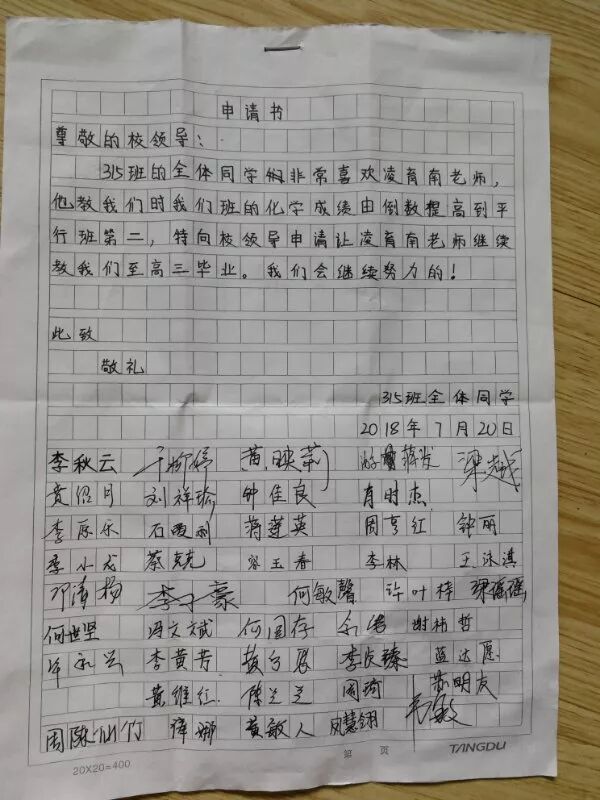 申请书
尊敬的校领导：
315班的全体同学们非常喜欢凌育南老师，
他教我们时我们班的化学成绩由倒数提高到平
行班第二，特向校领导申请让凌育南老师继续
教我们至高三毕业。我们会继续努力的！
此致
敬礼
315班全体同学
2018年7月20日
李秋云 黄映菊 梁越
刘祥瑜 钟佳良 肖时杰
李 乐 石 蒋莲英 周亨红 钟丽
李小龙 蔡克克 玉春 李林 王泳淇
邓清杨 李子豪 何敏馨 许叶梓 梁瑶瑶
何世坚 冯文斌 何国存 谢祎哲
李黄芳 蓝达愿
黄维红 陈兰兰 周琦 苏明友
周陈仙竹 谭娜 黄敏人 凤慧翎 韦敏
20X20=400 第 页 TANGDU